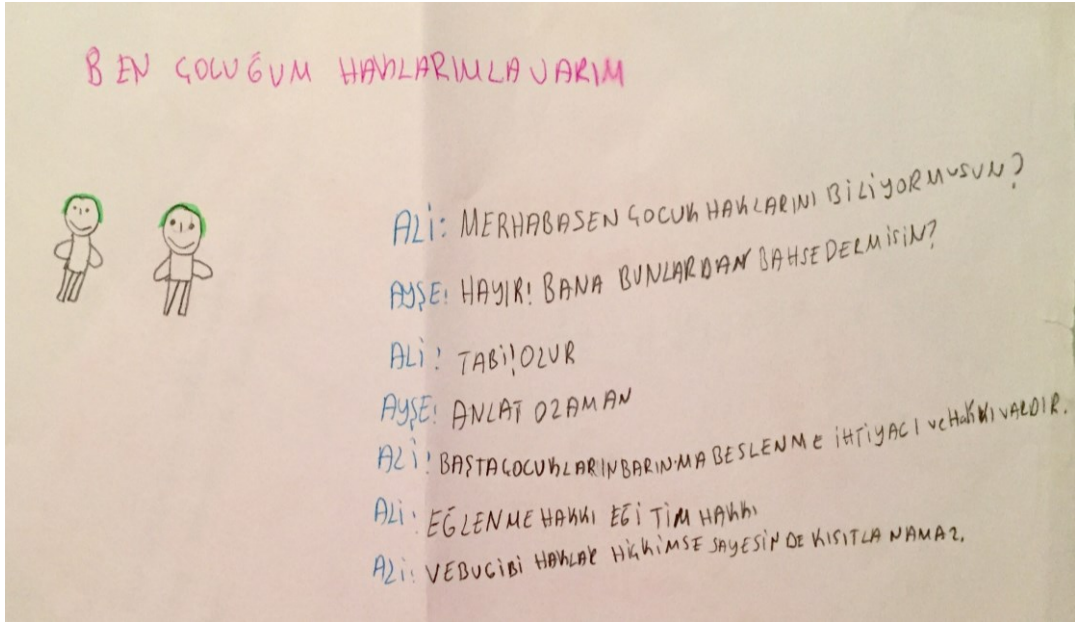 BEN ÇOCUĞUM HAKLARIMLA VARIM
ALİ: MERHABA SEN ÇOCUK HAKLARINI BİLİYORMUSUN?
AYŞE: HAYIR! BANA BUNLARDAN BAHSEDERMİSİN?
ALİ: TABİ! OLUR
AYŞE: ANLAT OZAMAN
ALİ: BAŞTA ÇOCUKLARIN BARINMA BESLENME İHTİYACI ve HAKKI VARDIR.
ALİ: EĞLENME HAKKI EĞİTİM HAKKI
ALİ: VE BU GİBİ HAKLAR HİÇKİMSE SAYESİNDE KISITLANAMAZ.